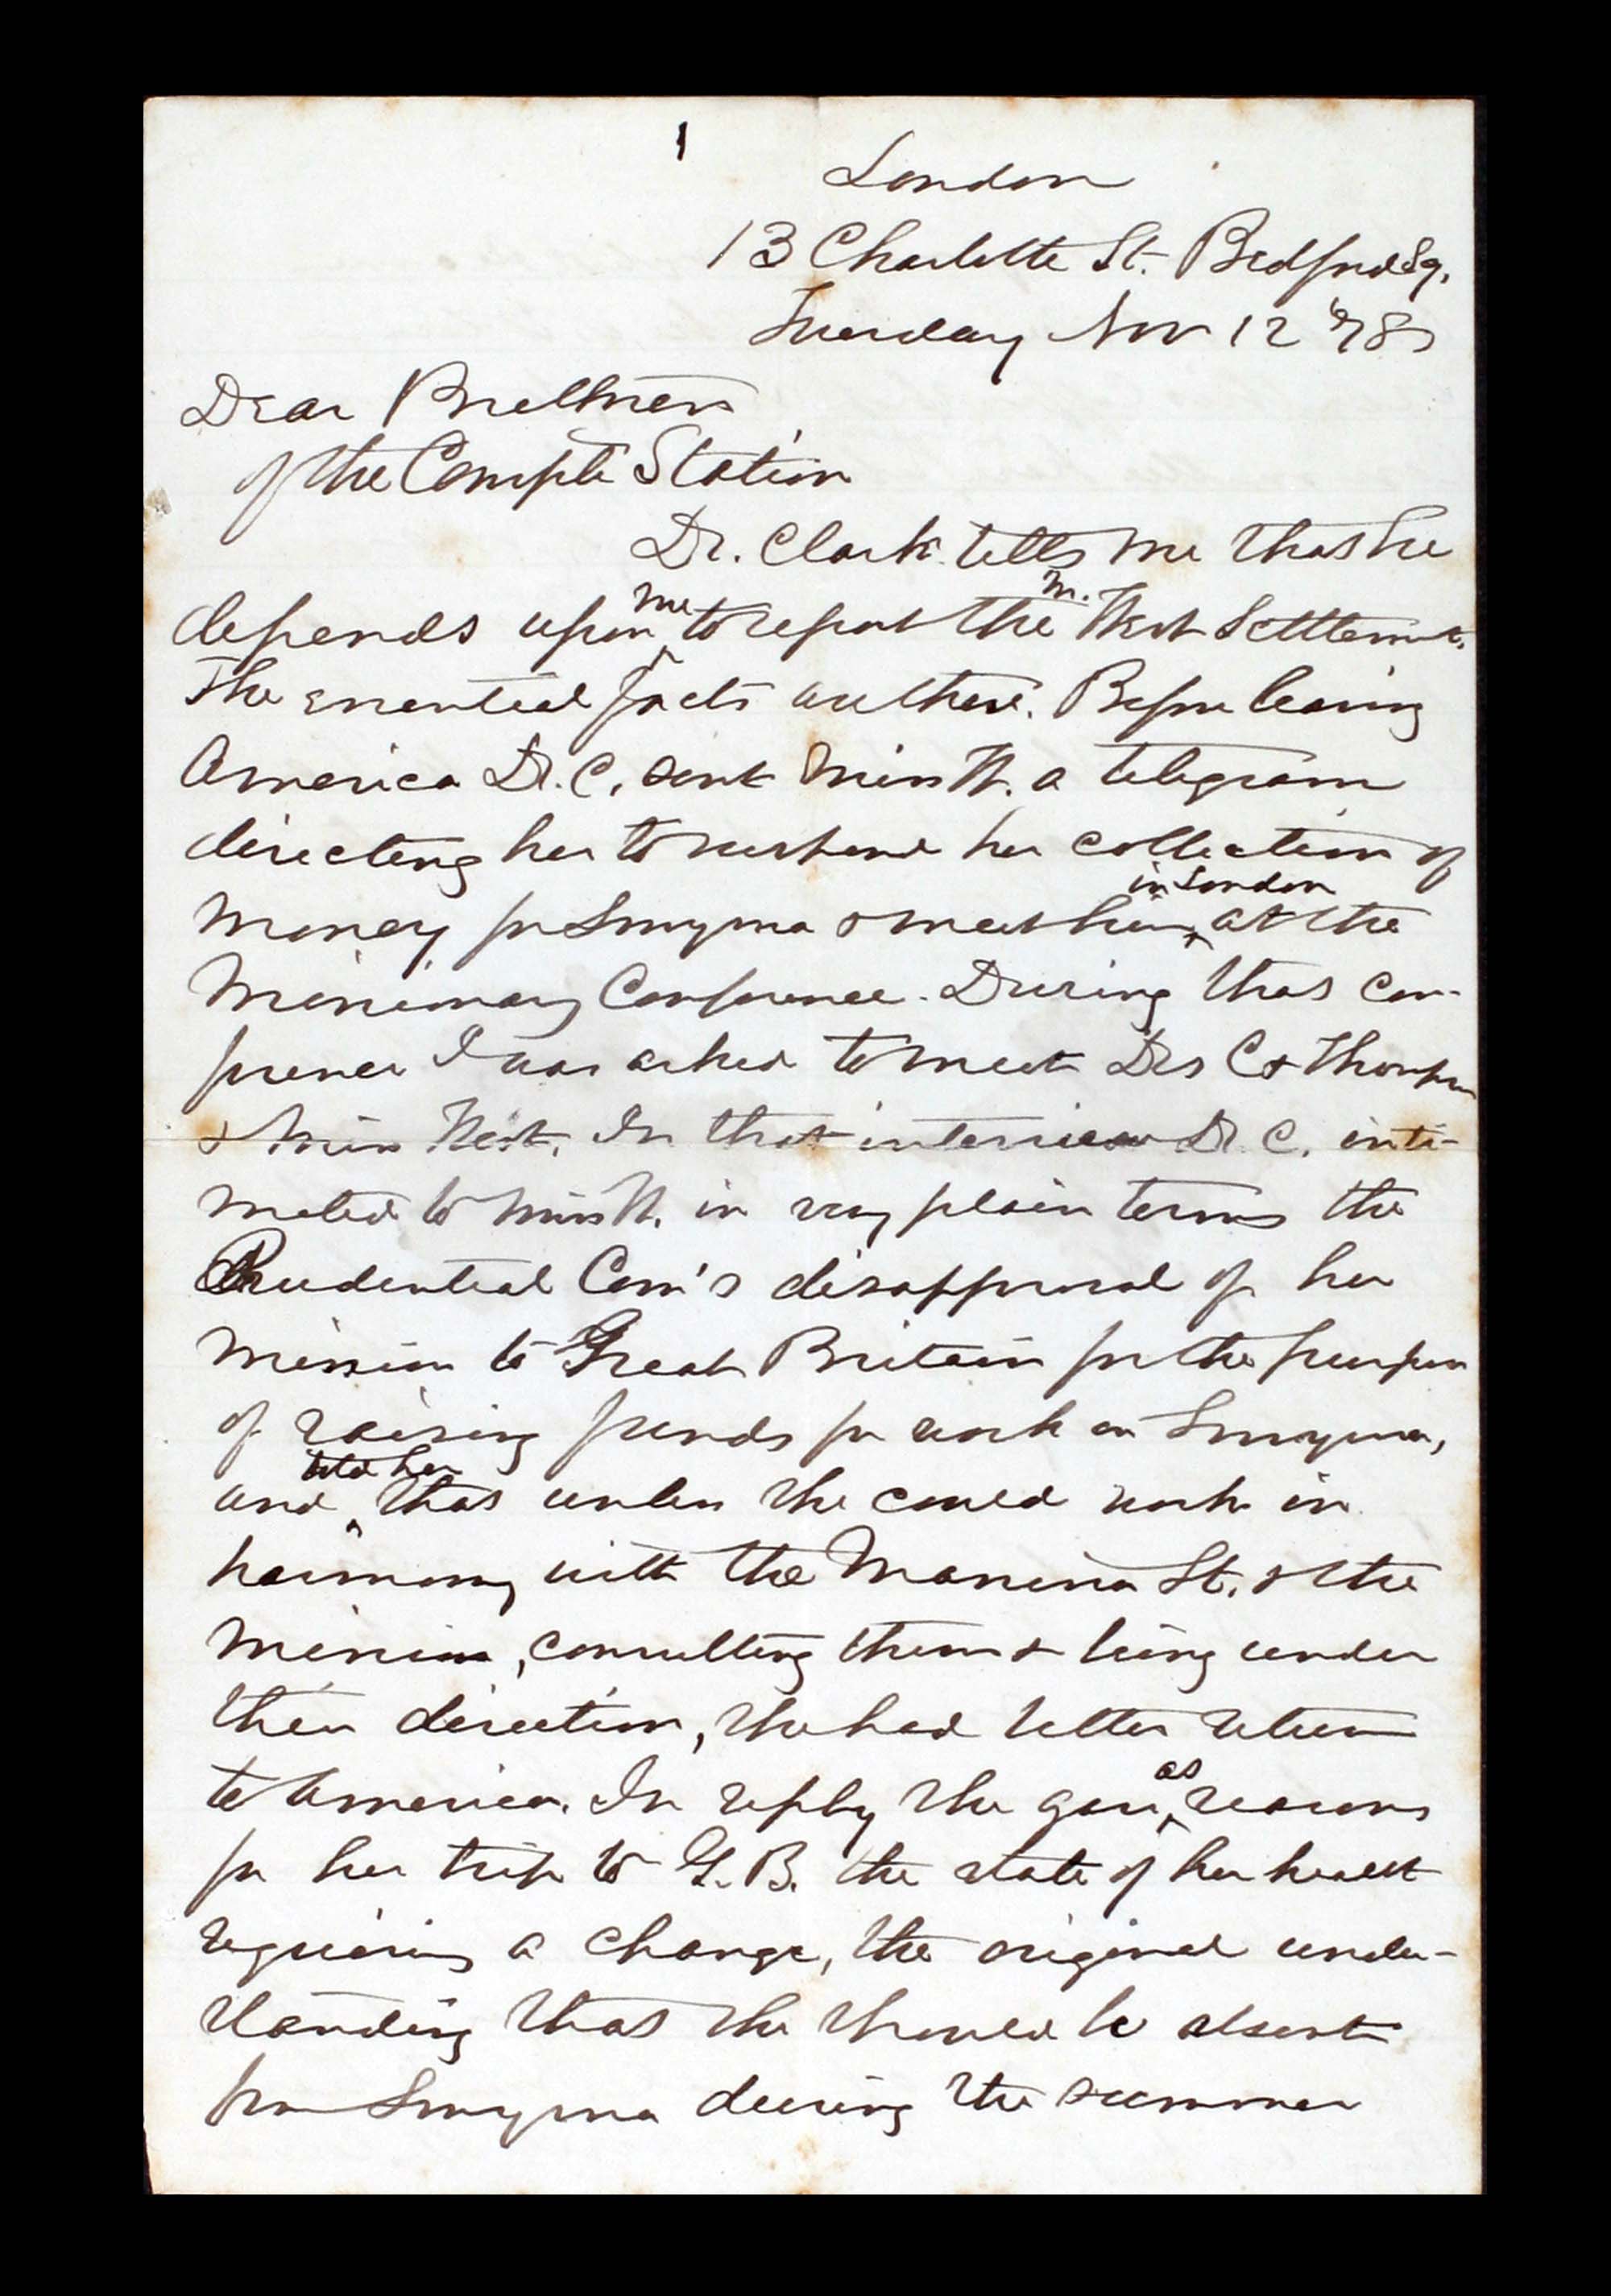 1
London
13 Charlotte St. Bedford Sq.
Tuesday Nov 12 '78
Dear Brethren
of the Constple Station
Dr. Clark tells me that he
depends upon me to report the M. West Settlement.
The essential facts are these. Before leaving
America Dr. C. sent Miss W. a telegram
directing her to suspend her collection of
money for Smyrna & meet him in London at the
Missionary Conference. During that con-
ference I was asked to meet Drs C & Thompson
& Miss West. In that interview Dr. C. inti-
mated to Miss W. in very plain terms the
Prudential Com's disapproval of her
mission to Great Britain for the purpose
of raising funds for work in Smyrna,
and told her that unless she could work in
harmony with the Manissa St. & the
Mission, consulting them & being under
their direction, she had better return
to America. In reply she gave as reasons
for her trip to G. B. the state of her health
requiring a change, the original under-
standing that she should be absent
from Smyrna during the summer